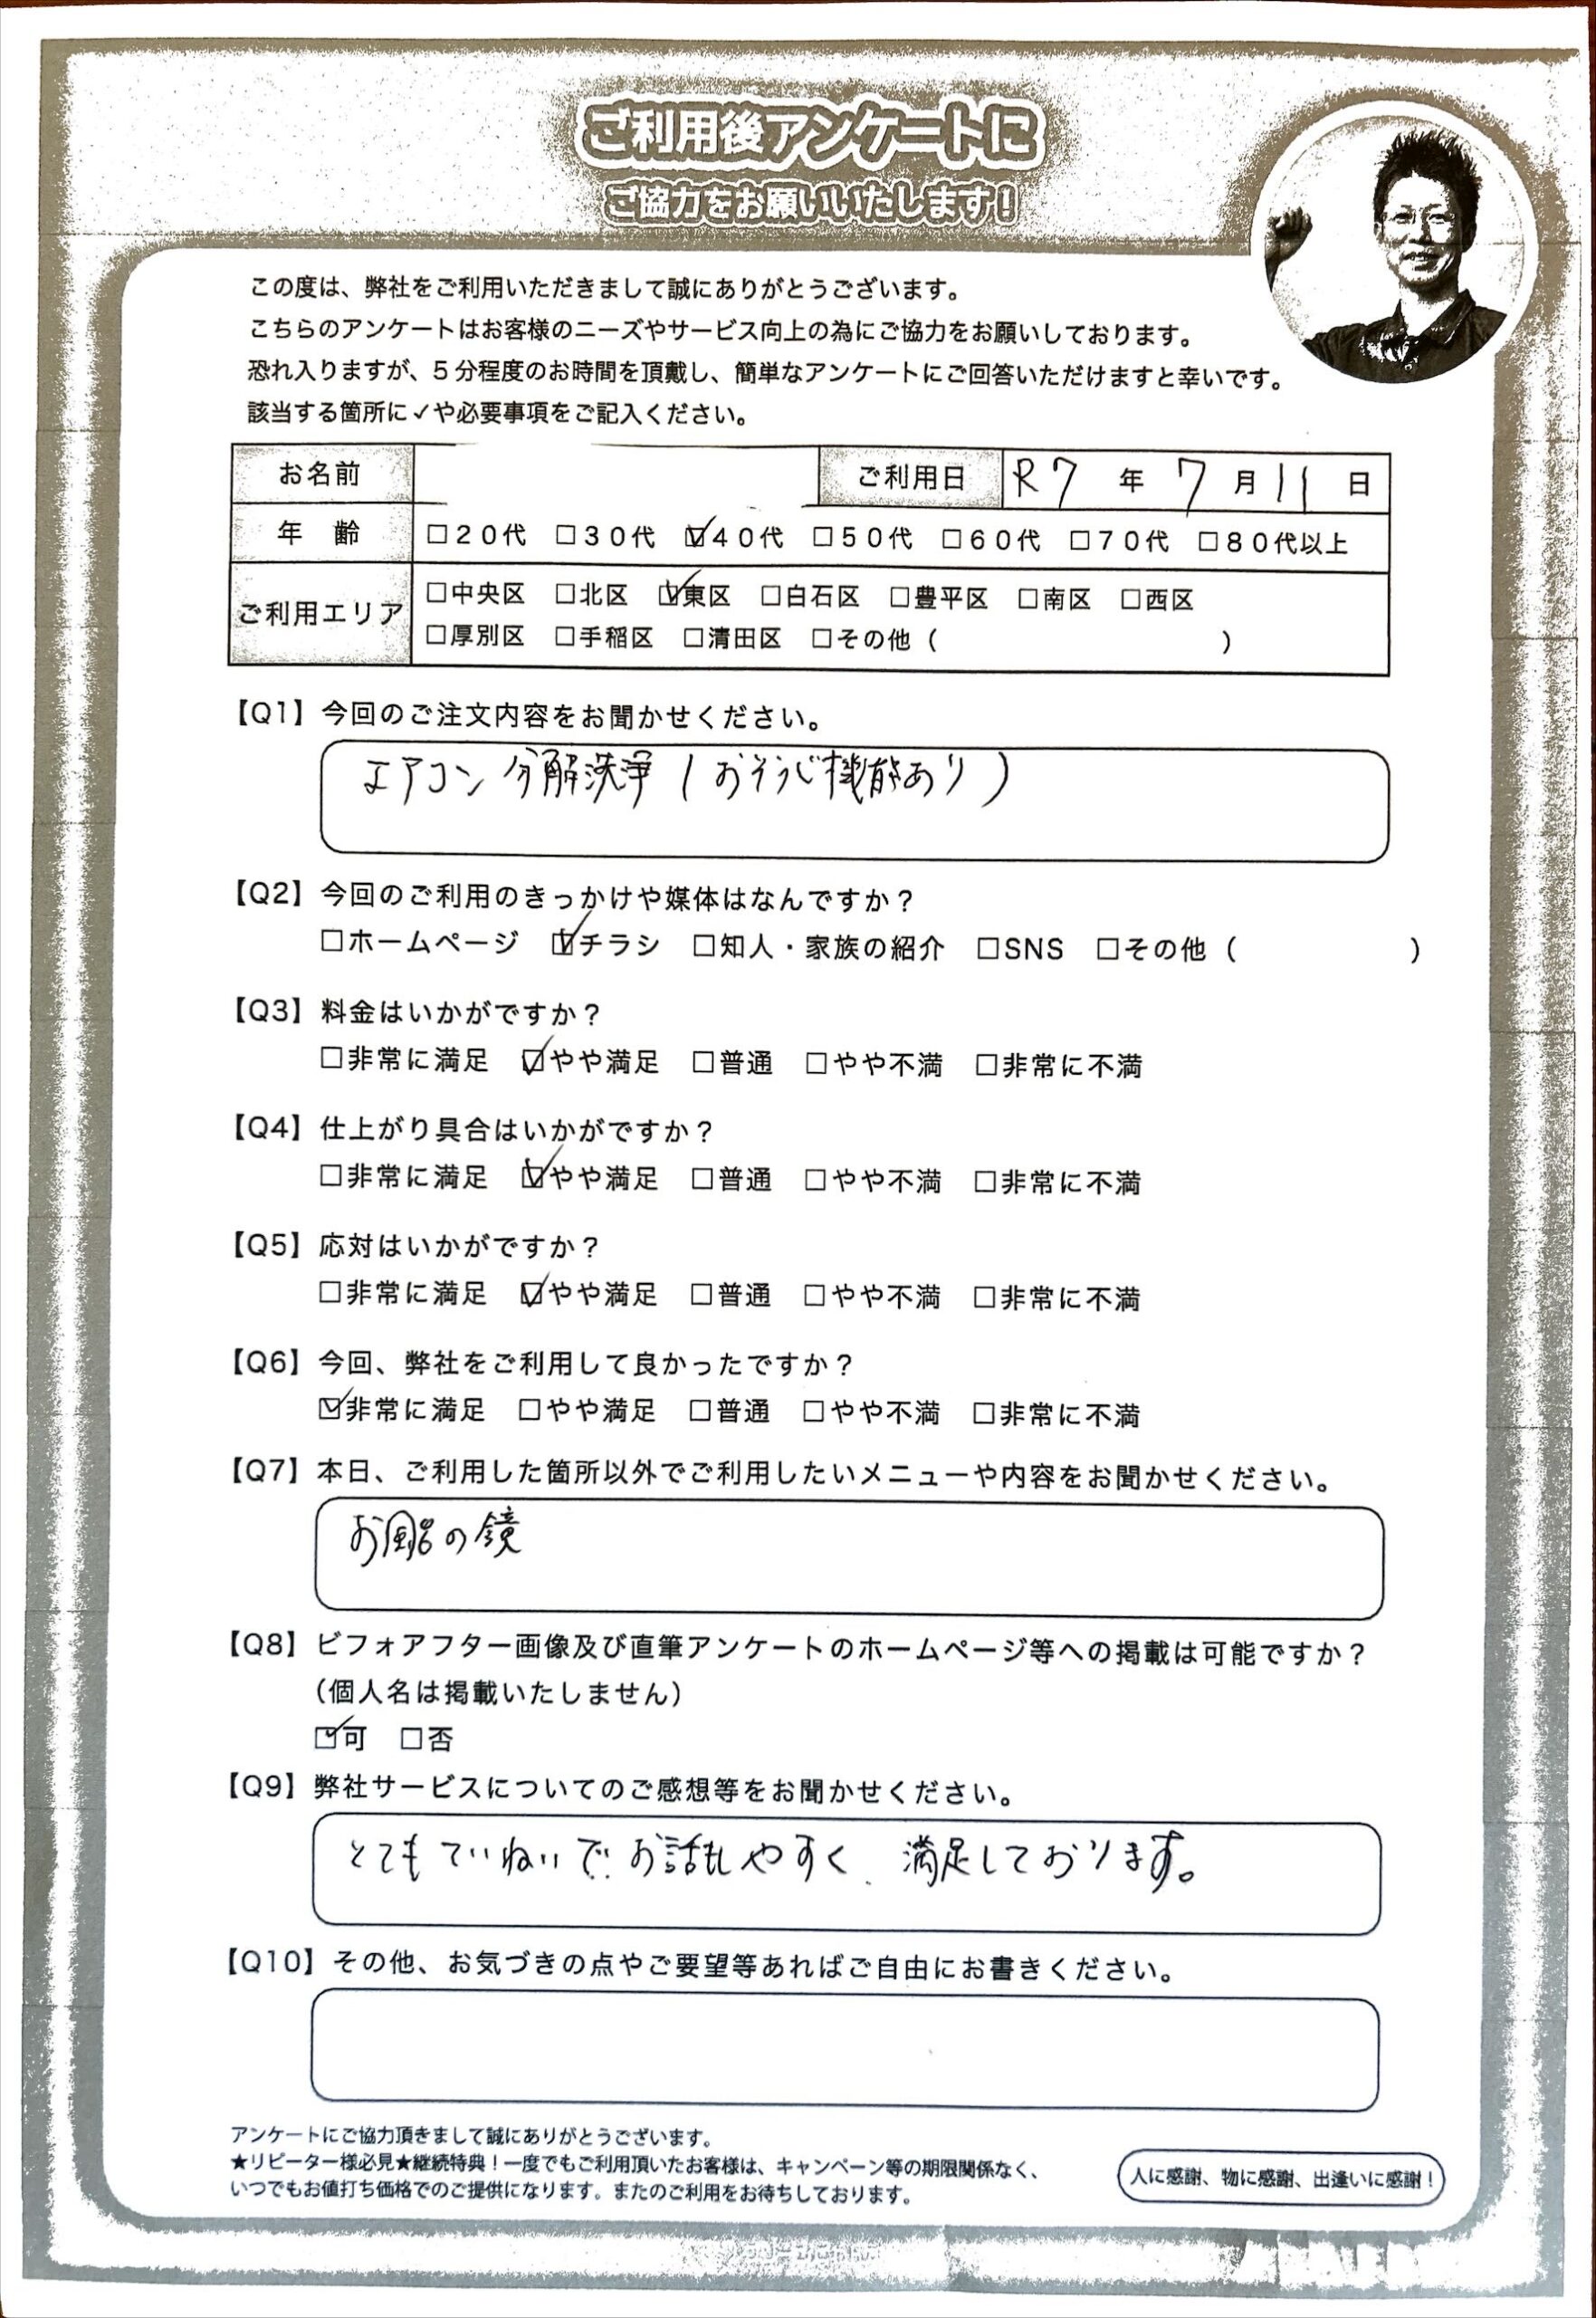 ご利用後アンケートに
ご協力をお願いいたします!
この度は、弊社をご利用いただきまして誠にありがとうございます。
こちらのアンケートはお客様のニーズやサービス向上の為にご協力をお願いしております。
恐れ入りますが、5分程度のお時間を頂戴し、簡単なアンケートにご回答いただけますと幸いです。
該当する箇所に✓や必要事項をご記入ください。
お名前 ご利用日 R7年7月11日
年齢 □20代 □30代 ☑40代 □50代 □60代 □70代 □80代以上
ご利用エリア □中央区 □北区 ☑東区 □白石区 □豊平区 □南区 □西区
□厚別区 □手稲区 □清田区 □その他( )
【Q1】今回のご注文内容をお聞かせください。
エアコン分解洗浄(おそうじ機能あり)
【Q2】今回のご利用のきっかけや媒体はなんですか?
□ホームページ ☑チラシ □知人・家族の紹介 □SNS □その他( )
【Q3】料金はいかがですか?
□非常に満足 ☑やや満足 □普通 □やや不満 □非常に不満
【Q4】仕上がり具合はいかがですか?
□非常に満足 ☑やや満足 □普通 □やや不満 □非常に不満
【Q5】応対はいかがですか?
□非常に満足 ☑やや満足 □普通 □やや不満 □非常に不満
【Q6】今回、弊社をご利用して良かったですか?
☑非常に満足 □やや満足 □普通 □やや不満 □非常に不満
【Q7】本日、ご利用した箇所以外でご利用したいメニューや内容をお聞かせください。
お風呂の鏡
【Q8】ビフォアフター画像及び直筆アンケートのホームページ等への掲載は可能ですか?
(個人名は掲載いたしません)
☑可 □否
【Q9】弊社サービスについてのご感想等をお聞かせください。
とてもていねいで、お話しやすく、満足しております。
【Q10】その他、お気づきの点やご要望等あればご自由にお書きください。
アンケートにご協力頂きまして誠にありがとうございます。
★リピーター様必見★継続特典!一度でもご利用頂いたお客様は、キャンペーン等の期限関係なく、
いつでもお値打ち価格でのご提供になります。またのご利用をお待ちしております。
人に感謝、物に感謝、出逢いに感謝!